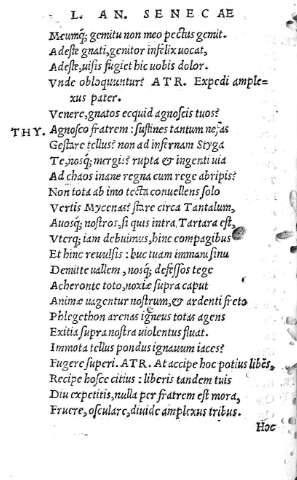 L. AN. SENECAE
Meumq; gemitu non meo pectus gemit.
Adeste gnati, genitor infelix uocat,
Adeste, uisis fugiet hic uobis dolor.
Vnde obloquuntur? ATR. Expedi ample-
xus pater.
Venere, gnatos ecquid agnoscis tuos?
THY. Agnosco fratrem: sustines tantum nefas
Gestare tellus? non ad infernam Styga
Te, nosq; mergis? rupta & ingenti uia
Ad chaos inane regna cum rege abripis?
Non tota ab imo tecta conuellens solo
Vertis Mycenas? stare circa Tantalum,
Auosq; nostros, si quis intra Tartara est,
Vterq; iam debuimus, hinc compagibus
Et hinc reuulsis: huc tuam immani sinu
Demitte uallem, nosq; defessos tege
Acheronte toto, noxiæ supra caput
Animæ uagentur nostrum, & ardenti freto
Phlegethon arenas igneus totas agens
Exitia supra nostra uiolentus fluat.
Immota tellus pondus ignauum iaces?
Fugere superi. ATR. At accipe hoc potius libēs,
Recipe hosce citius: liberis tandem tuis
Diu expetitis, nulla per fratrem est mora,
Fruere, osculare, diuide amplexus tribus.
Hoc